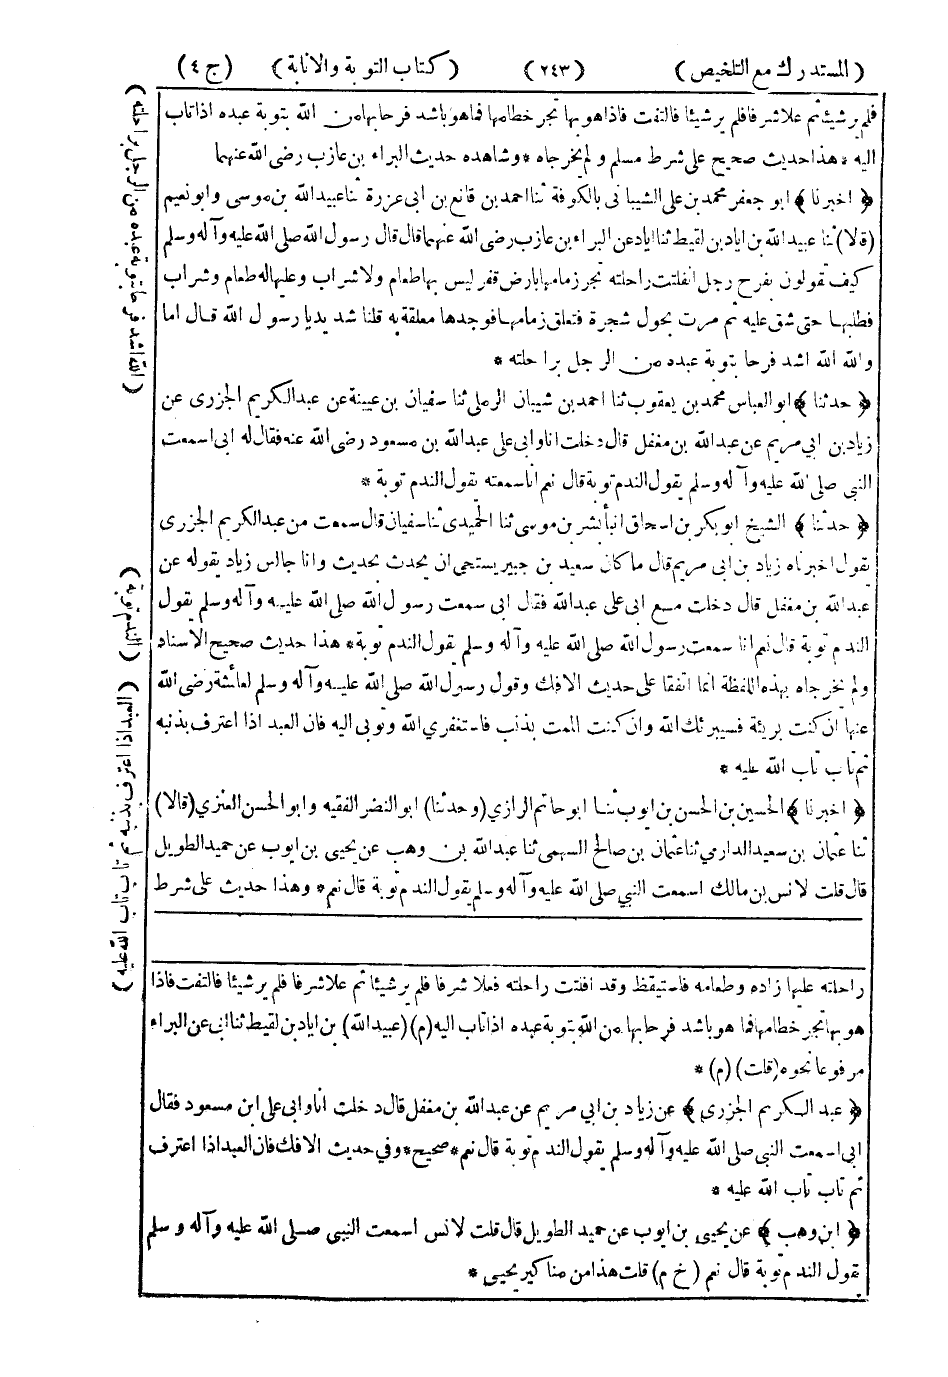 (المستدرك مع التلخيص) (٢٤٣) (كتاب التوبة والانابة) (ج ٤)
فلم ير شيئا ثم علا شرفا فلم ير شيئا فالتفت فاذا هو بها تجر خطامها فما هو باشد فرحا بها من الله بتوبة عبده اذا تاب
اليه * هذا حديث صحيح على شرط مسلم ولم يخرجاه * وشاهده حديث البراء بن عازب رضى الله عنهما
﴿ اخبرنا ﴾ ابو جعفر محمد بن على الشيبانى بالكوفة ثنا احمد بن قانع بن ابى عزرة ثنا عبيد الله بن موسى وابو نعيم
(قالا) ثنا عبيد الله بن اياد بن لقيط ثنا اياد عن البراء بن عازب رضى الله عنهما قال قال رسول الله صلى الله عليه وآله وسلم
كيف تقولون بفرح رجل انفلتت راحلته تجر زمامها بارض قفر ليس بها طعام ولا شراب وعليها له طعام وشراب
فطلبها حتى شق عليه ثم مرت بحول شجرة فتعلق زمامها فوجدها معلقة به قلنا شديد يا رسول الله قال اما
والله الله اشد فرحا بتوبة عبده من الرجل براحلته *
﴿ حدثنا ﴾ ابو العباس محمد بن يعقوب ثنا احمد بن شيبان الرملى ثنا سفيان بن عيينة عن عبد الكريم الجزرى عن
زياد بن ابي مريم عن عبد الله بن مغفل قال دخلت انا وابى على عبد الله بن مسعود رضى الله عنه فقال له ابى اسمعت
النبى صلى الله عليه وآله وسلم يقول الندم توبة قال نعم انا سمعته يقول الندم توبة *
﴿ حدثنا ﴾ الشيخ ابو بكر بن اسحاق انبأ بشر بن موسى ثنا الحميدى ثنا سفيان قال سمعت من عبد الكريم الجزرى
يقول اخبرناه زياد بن ابى مريم قال ما كان سعيد بن جبير يستحى ان يحدث بحديث وانا جالس زياد يقوله عن
عبد الله بن مغفل قال دخلت مع ابى على عبد الله فقال ابى سمعت رسول الله صلى الله عليه وآله وسلم يقول
الندم توبة قال نعم انا سمعت رسول الله صلى الله عليه وآله وسلم يقول الندم توبة * هذا حديث صحيح الاسناد
ولم يخرجاه بهذه اللفظة انما اتفقا على حديث الافك وقول رسول الله صلى الله عليه وآله وسلم لعائشة رضى الله
عنها ان كنت بريئة فسيبرئك الله وان كنت الممت بذنب فاستغفري الله وتوبى اليه فان العبد اذا اعترف بذنبه
ثم تاب تاب الله عليه *
﴿ اخبرنا ﴾ الحسين بن الحسن بن ايوب ثنا ابو حاتم الرازي (وحدثنا) ابو النضر الفقيه وابو الحسن العنزي (قالا)
ثنا عثمان بن سعيد الدارمي ثنا عثمان بن صالح السهمى ثنا عبد الله بن وهب عن يحيى بن ايوب عن حميد الطويل
قال قلت لانس بن مالك اسمعت النبي صلى الله عليه وآله وسلم يقول الندم توبة قال نعم * وهذا حديث على شرط
راحلته عليها زاده وطعامه فاستيقظ وقد افلتت راحلته فعلا شرفا فلم ير شيئا ثم علا شرفا فلم ير شيئا فالتفت فاذا
هو بها تجر خطامها فما هو باشد فرحا بها من الله بتوبة عبده اذا تاب اليه (م) (عبيد الله) بن اياد بن لقيط ثنا ابى عن البراء
مرفوعا نحوه (قلت) (م) *
﴿ عبد الكريم الجزرى ﴾ عن زياد بن ابي مريم عن عبد الله بن مغفل قال دخلت انا وابى على ابن مسعود فقال
ابى اسمعت النبى صلى الله عليه وآله وسلم يقول الندم توبة قال نعم * صحيح * وفي حديث الافك فان العبد اذا اعترف
ثم تاب تاب الله عليه *
﴿ ابن وهب ﴾ عن يحيى بن ايوب عن حميد الطويل قال قلت لانس اسمعت النبى صلى الله عليه وآله وسلم
يقول الندم توبة قال نعم (خ م) قلت هذا من مناكير يحيى *
(الله اشد فرحا بتوبة عبده من الرجل براحلته)
(الندم توبة)
(العبد اذا اعترف بذنبه ثم تاب تاب الله عليه)